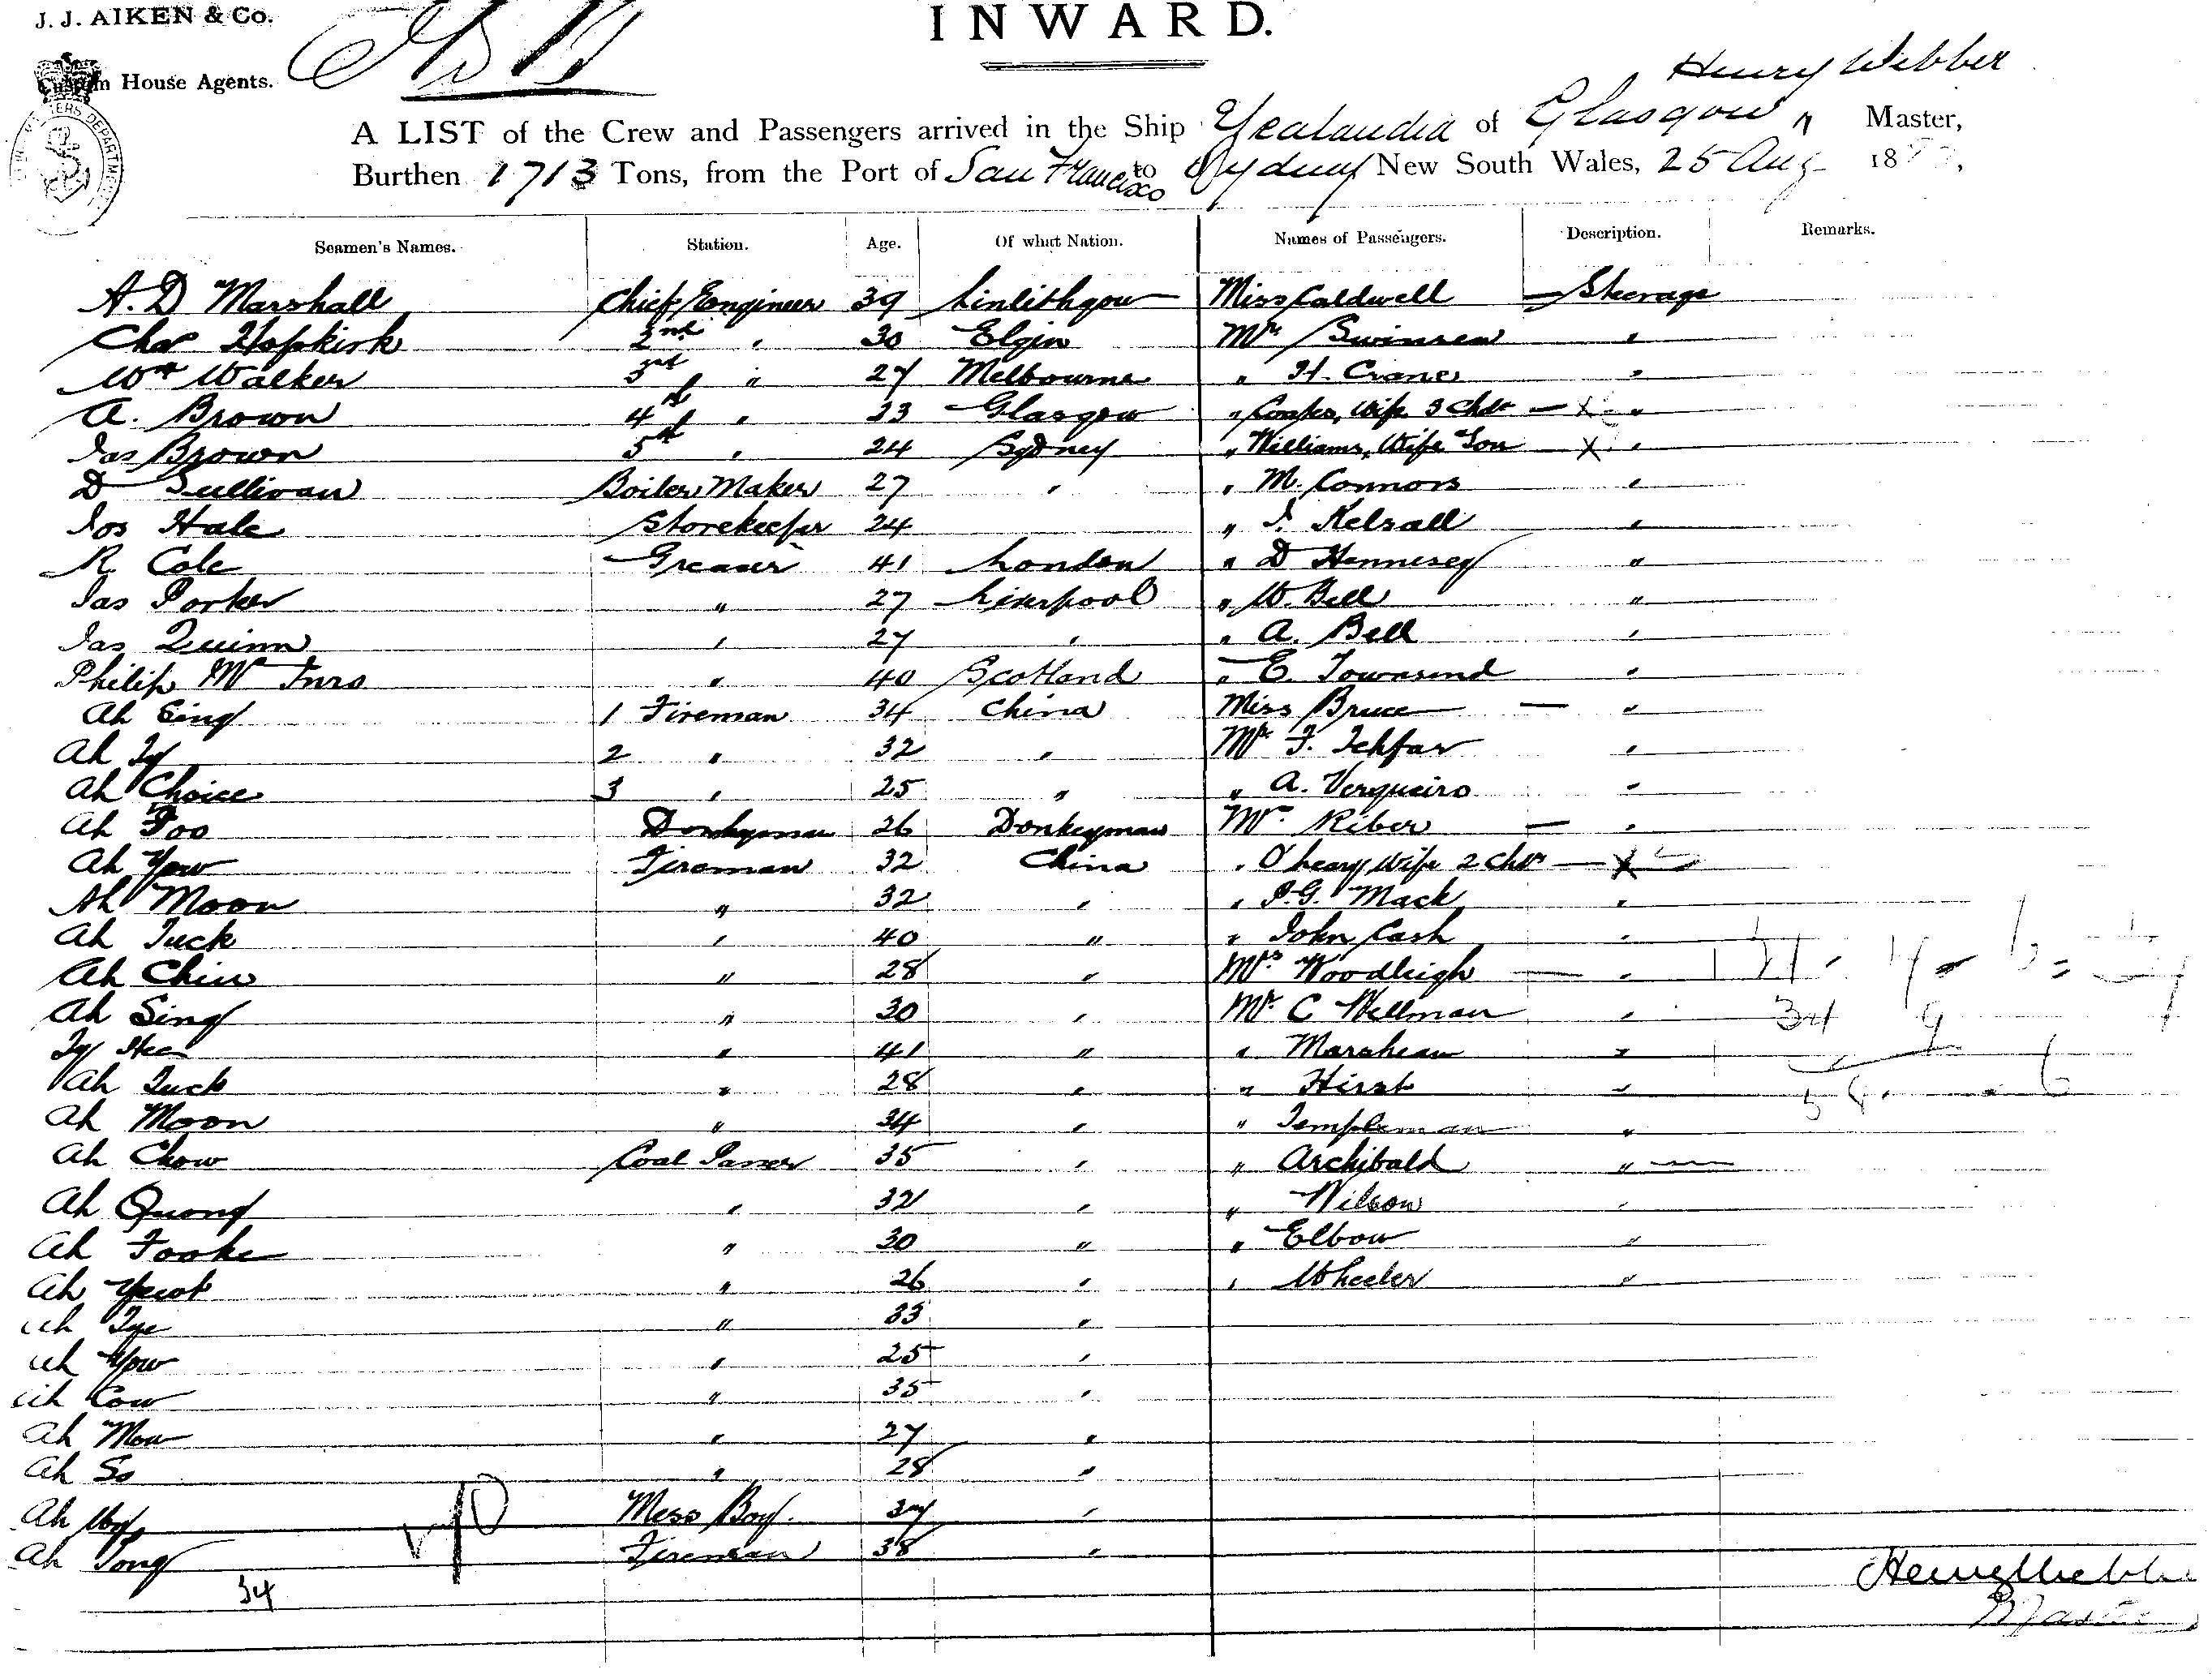 J. J. AIKEN & Co.
INWARD.
House Agents.
Henry Webber
A LIST of the Crew and Passengers arrived in the Ship Zealandia of Glasgow, Master,
Burthen 1713 Tons, from the Port of San Francisco to Sydney New South Wales, 25 Aug 18
Seamen's Names. Station. Age. Of what Nation. Names of Passengers. Description. Remarks.
A. D Marshall Chief Engineer 39 Linlithgow Miss Caldwell — Steerage
Chas Hopkirk 2nd " 30 Elgin Mr Swinsen "
Wm Walker 3rd " 27 Melbourne " H. Crane "
A. Brown 4th " 33 Glasgow " Wife 3 Chdn — X "
Jas Brown 5th " 24 Sydney " Williams, Wife Son — X "
D Sullivan Boiler Maker 27 " " M. Connors "
Jos Hale Storekeeper 24 " J. Kelsall "
R Cole Greaser 41 London " D Hennesey "
Jas Porker " 27 Liverpool " W. Bell "
Jas Quinn " 27 " " A. Bell "
Philip Mc " 40 Scotland " E. Townsend "
Ah Sing 1 Fireman 34 China Miss Bruce — "
Ah 2 " 32 " Mr F. "
Ah Choice 3 " 25 " " A. Vergueiro "
Ah Foo Donkeyman 26 Donkeyman Riber — "
Ah Yow Fireman 32 China " O'Leary Wife 2 Chdn — X
Ah Moon " 32 " " Mack "
Ah Tuck " 40 " " John Cash "
Ah Chin " 28 " Mrs Woodleigh — "
Ah Sing " 30 " Mr. C Wellman "
" 41 " " "
Ah Tuck " 28 " " Hirst "
Ah Moon " 34 " " Templeman "
Ah Chow Coal Passer 35 " " Archibald "
Ah Quong " 32 " " Wilson "
Ah Fooke " 30 " " Elbow "
Ah " 26 " " Wheeler "
Ah Tye " 33 "
Ah Yow " 25 "
Ah Cow " 35 "
Ah Mow " 27 "
Ah So " 28 "
Ah Mess Boy. "
Ah Tong Fireman 38 "
34
Henry Webber
Master